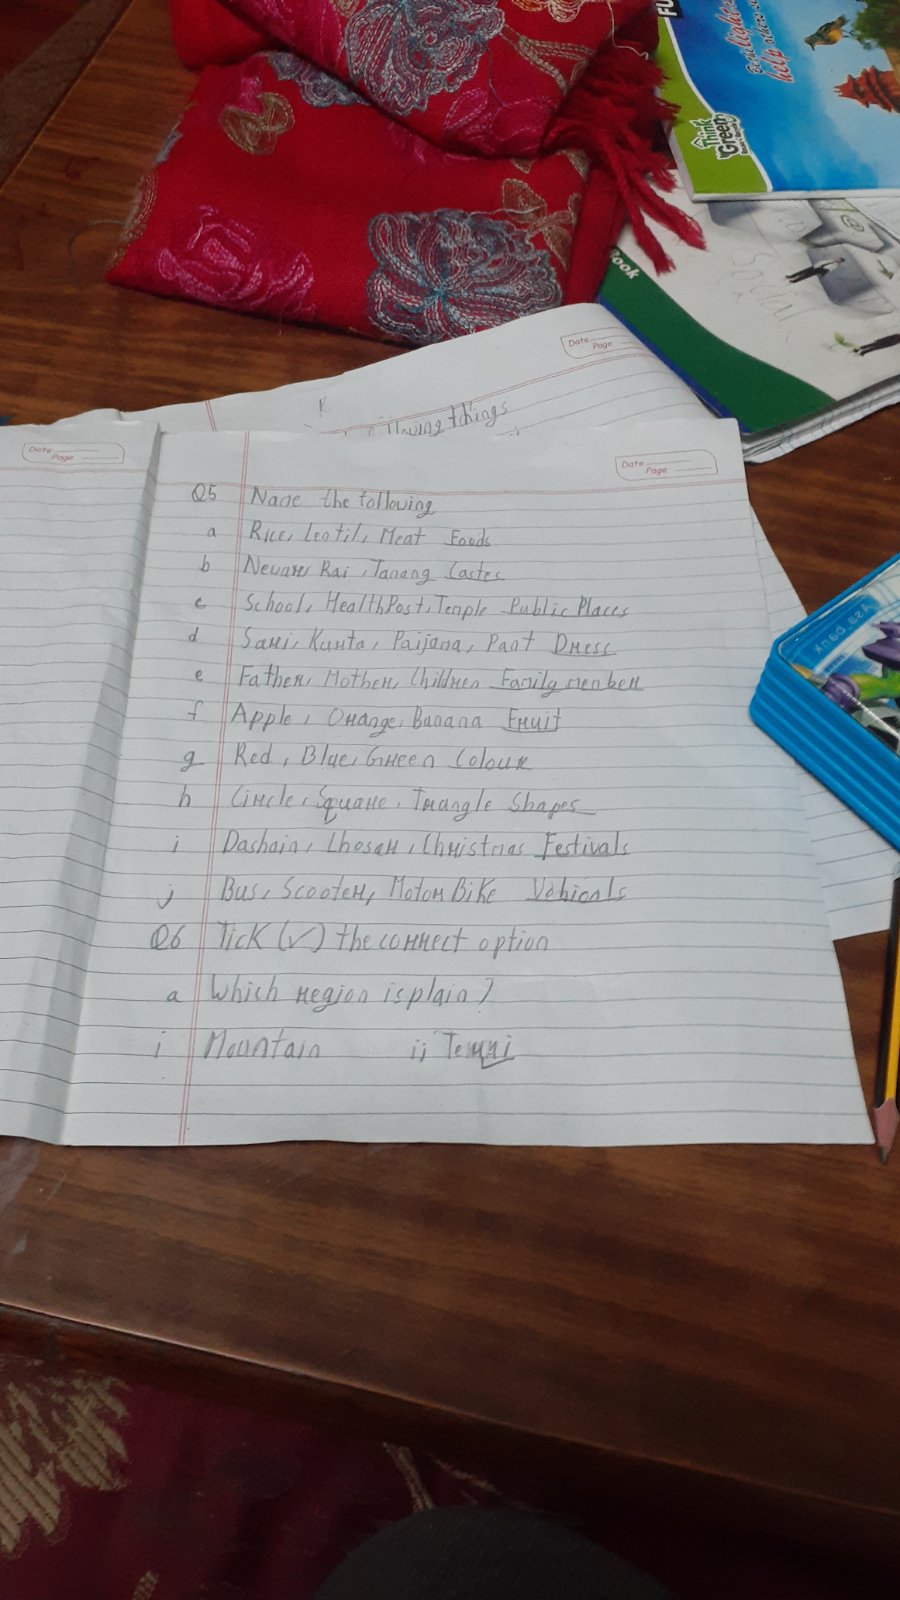 FU
Be enlightened
help others
Think
Green
ook
Social
Date
Page
llowing things
Date
Page
Date
Page
Q5 Name the following
a Rice, Leotil, Meat Foods
b Newar, Rai, Tamang Castes
c School, HealthPost, Temple Public Places
d Sari, Kurta, Paijama, Pant Dress
e Father, Mother, Children Family member
f Apple, Orange, Banana Fruit
g Red, Blue, Green Colour
h Circle, Square, Triangle Shapes
i Dashain, Lhosar, Christmas Festivals
j Bus, Scooter, Motor Bike Vehicals
Q6 Tick (✓) the correct option
a Which region is plain?
i Mountain ii Terrai